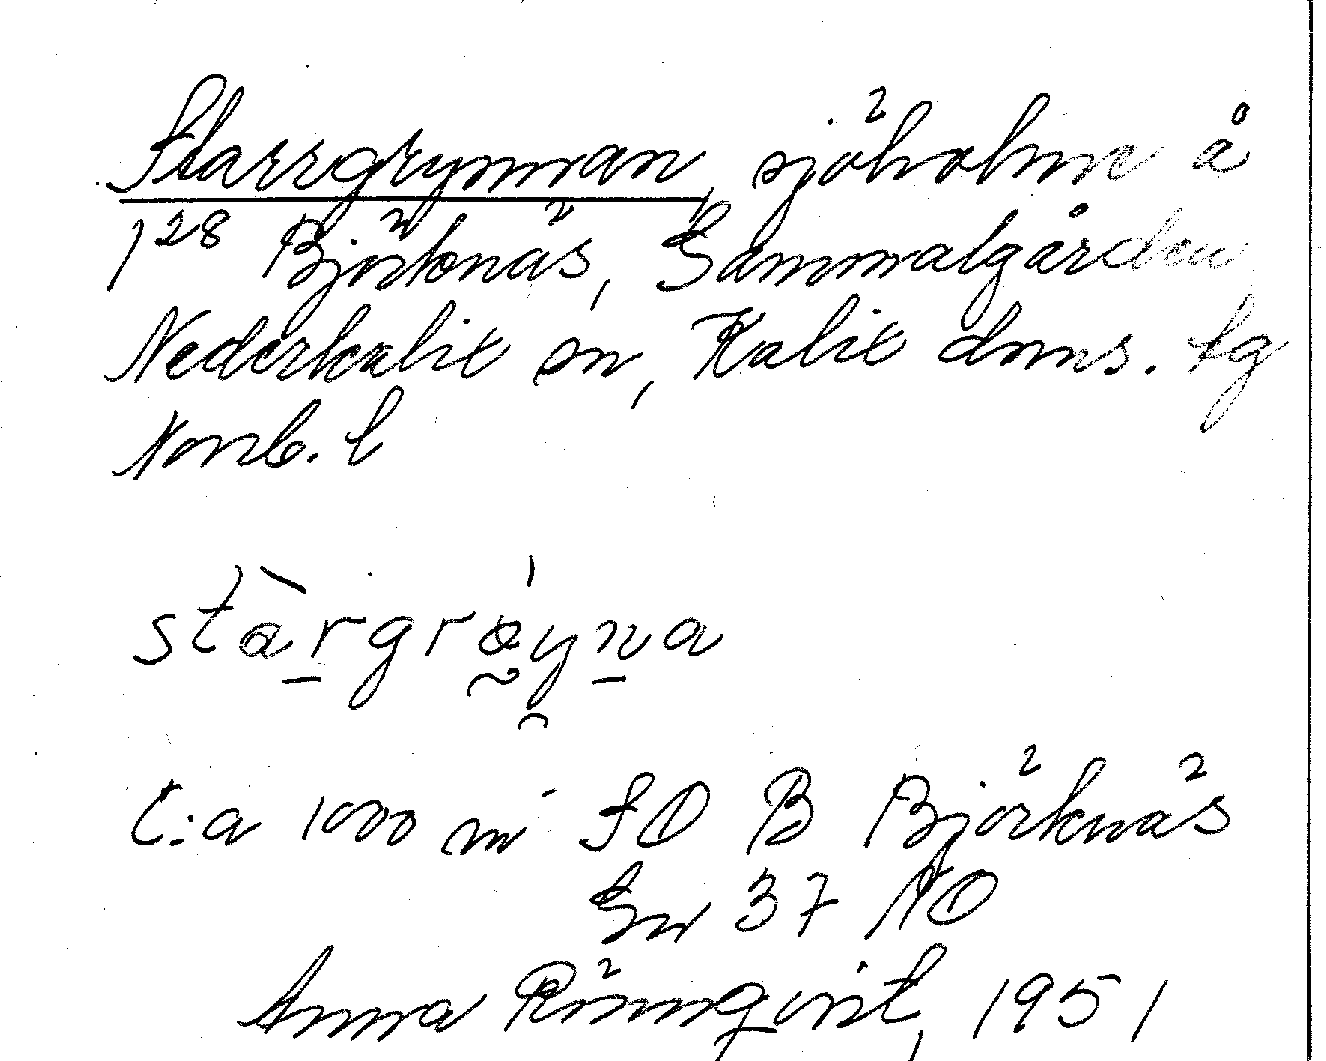 Starrgrynnan, sjöholme å
1²⁸ Björknäs, Gammalgården
Nederkalix sn, Kalix doms. tg
Norrb. l
stàrgrǿyna
C:a 1000 m SO B Björknäs
Gv 37 NO
Anna Rönnqvist, 1951